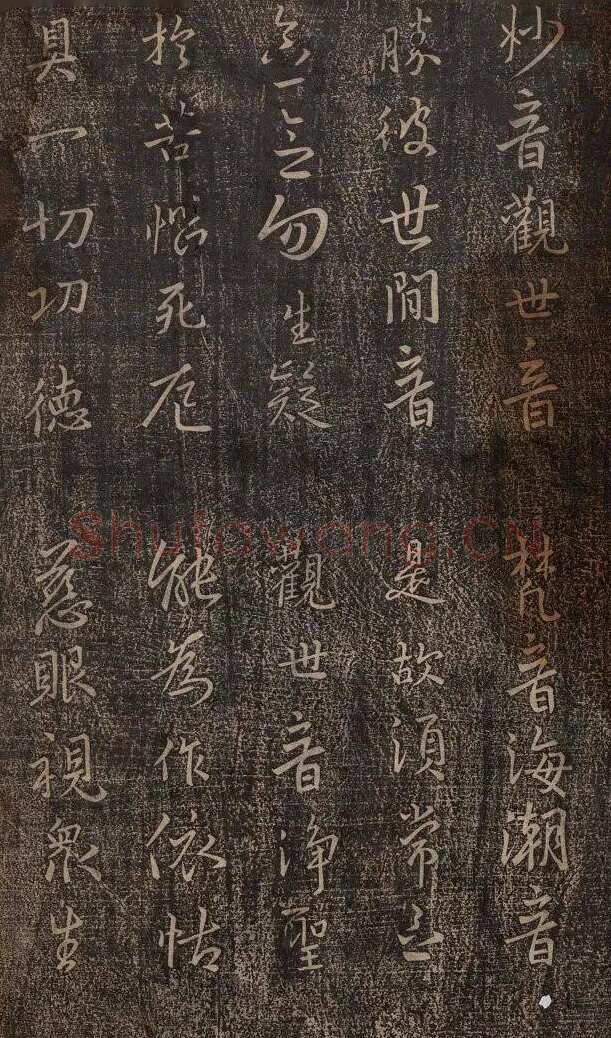 妙音觀世音 梵音海潮音
勝彼世間音 是故須常念
念念勿生疑 觀世音淨聖
於苦惱死厄 能為作依怙
具一切功德 慈眼視眾生
Shufawang.cn